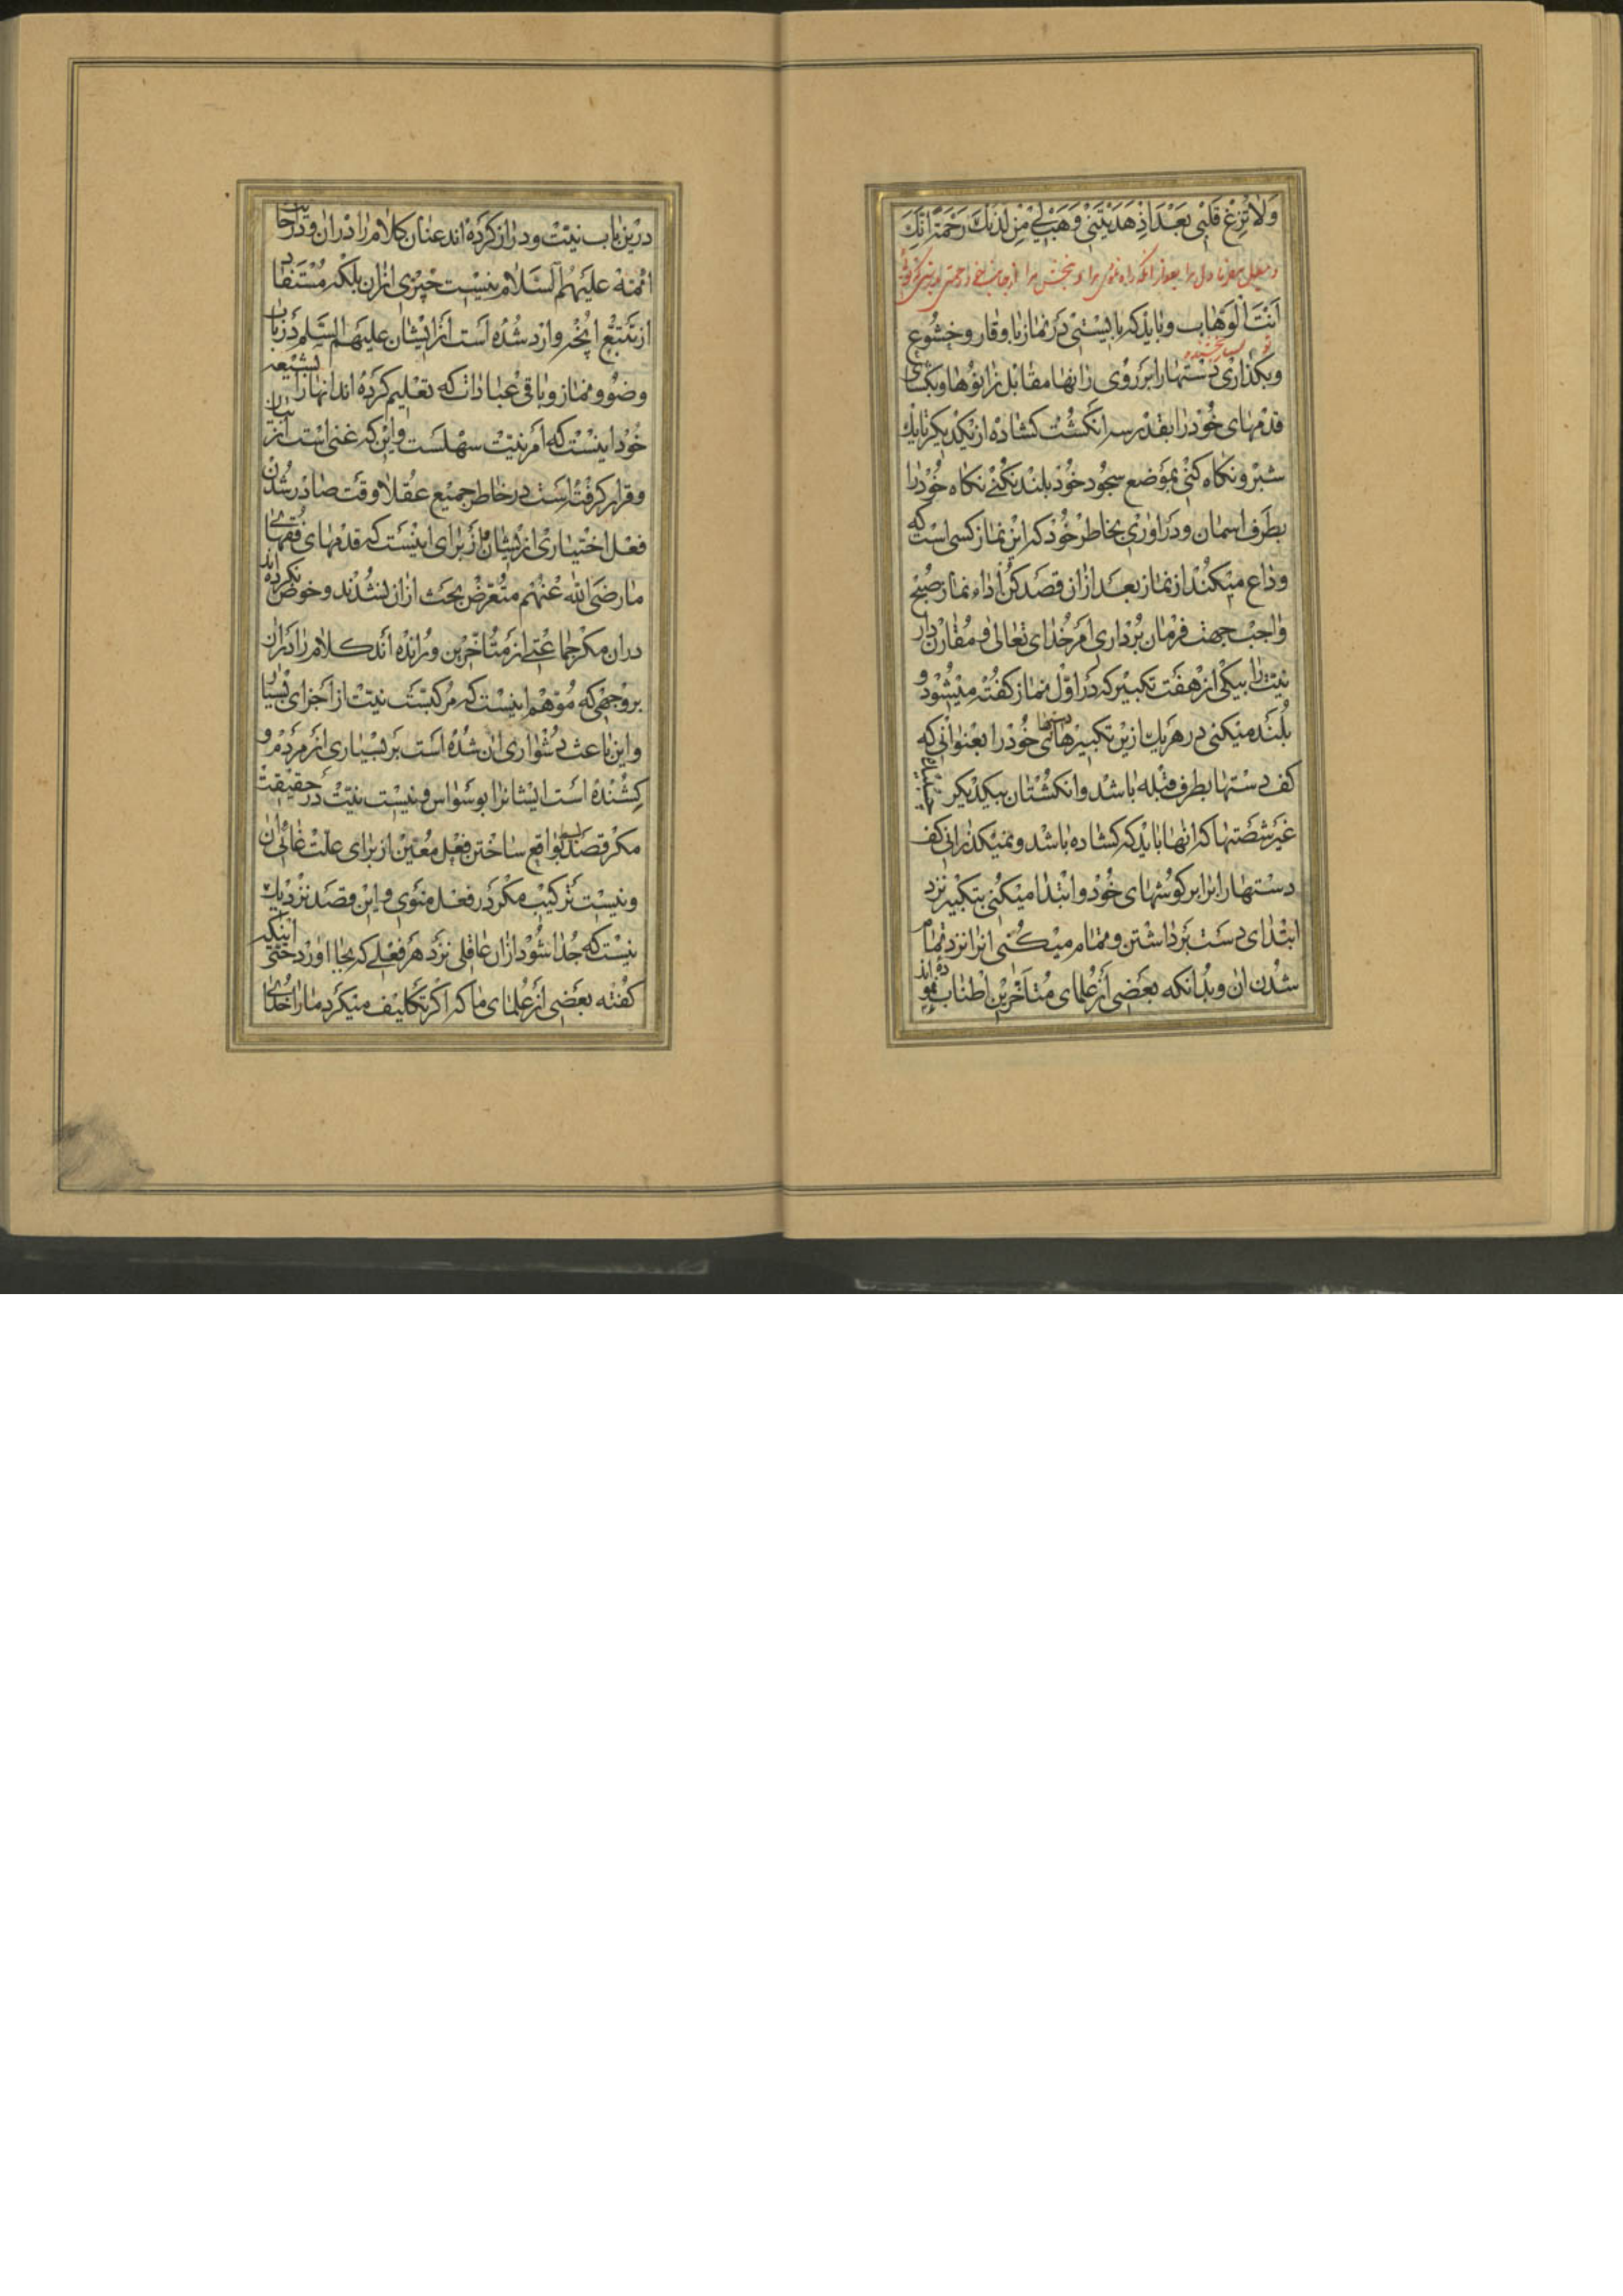 وَلاٰ تُزِغْ قَلْبٖى بَعْدَ اِذْ هَدَيْتَنٖى وَهَبْ لٖى مِنْ لَدُنْكَ رَحْمَةً اِنَّكَ
و ميل مفرما دل مرا بعد از آنكه راه نمودى مرا و ببخش مرا از جانب خود رحمتى بدرستى كه توئى
اَنْتَ الْوَهّٰاب و بايد كه بايستى در نماز با وقار و خشوع
تو بخشنده
و بكذارى دستها را بر روى رانها مقابل زانوها و بكشائ
قدمهاى خود را بقدر سه انكشت كشاده از يكديكر تا يك
شبر و نكاه كنى بموضع سجود خود بلند نكنى نكاه خود را
بطرف اسمان و در اورى بخاطر خود كه اين نماز كسى است كه
وداع ميكند از نماز بعد ازان قصد كن اداء نماز صبح
واجب جهت فرمان بردارى امر خداى تعالى و مقارن دار
نيت را بيكى از هفت تكبير كه در اول نماز كفته ميشود و
بلند ميكنى در هر يك ازين تكبيرها دستهاى خود را بعنوانى كه
كف دستها بطرف قبله باشد و انكشتان بيكديكر چسبيده
غير شصتها كه انها بايد كه كشاده باشد و نميكذرانى كف
دستها را از برابر كوشهاى خود و ابتدا ميكنى بتكبير نزد
ابتداى دست برداشتن و تمام ميكنى انرا نزد تمام
شدن ان و بدانكه بعضى از علماى متاخرين اطناب نموده اند
درين باب نيت و دراز كرده اند عنان كلام را در ان و در احاديث
ائمه عليهم السلام نيست چيزى ازان بلكه مستفاد
از تتبع انچه وارد شده است از ايشان عليهم السلم در باب
وضو و نماز و باقى عبادات كه تعليم كرده اند انها را بشيعه
خود اينست كه امر نيت سهلست و اين كه غنى است از بيان
و قرار كرفته است در خاطر جميع عقلا وقت صادر شدن
فعل اختيارى از ايشان و از براى اينست كه قدمهاى فقهاى
ما رضى الله عنهم متعرض بحث ازان نشدند و خوض نكرده اند
دران مكر جماعتى از متاخرين و رانده اند كلام را دران
بر وجهى كه موهم اينست كه مركبست نيت از اجزاى بسيار
و اين باعث دشوارى ان شده است بر بسيارى از مردم و
كشنده است ايشانرا بوسواس و نيست نيت در حقيقت
مكر قصد بواقع ساختن فعل معين از براى علت غائى ان
و نيست تركيب مكر در فعل منوى و اين قصد نزديك
نيست كه جدا شود ازان عاقلى نزد هر فعلى كه بجا اورد حتى اينكه
كفته بعضى از علماى ما كه اكر تكليف ميكرد ما را خداى